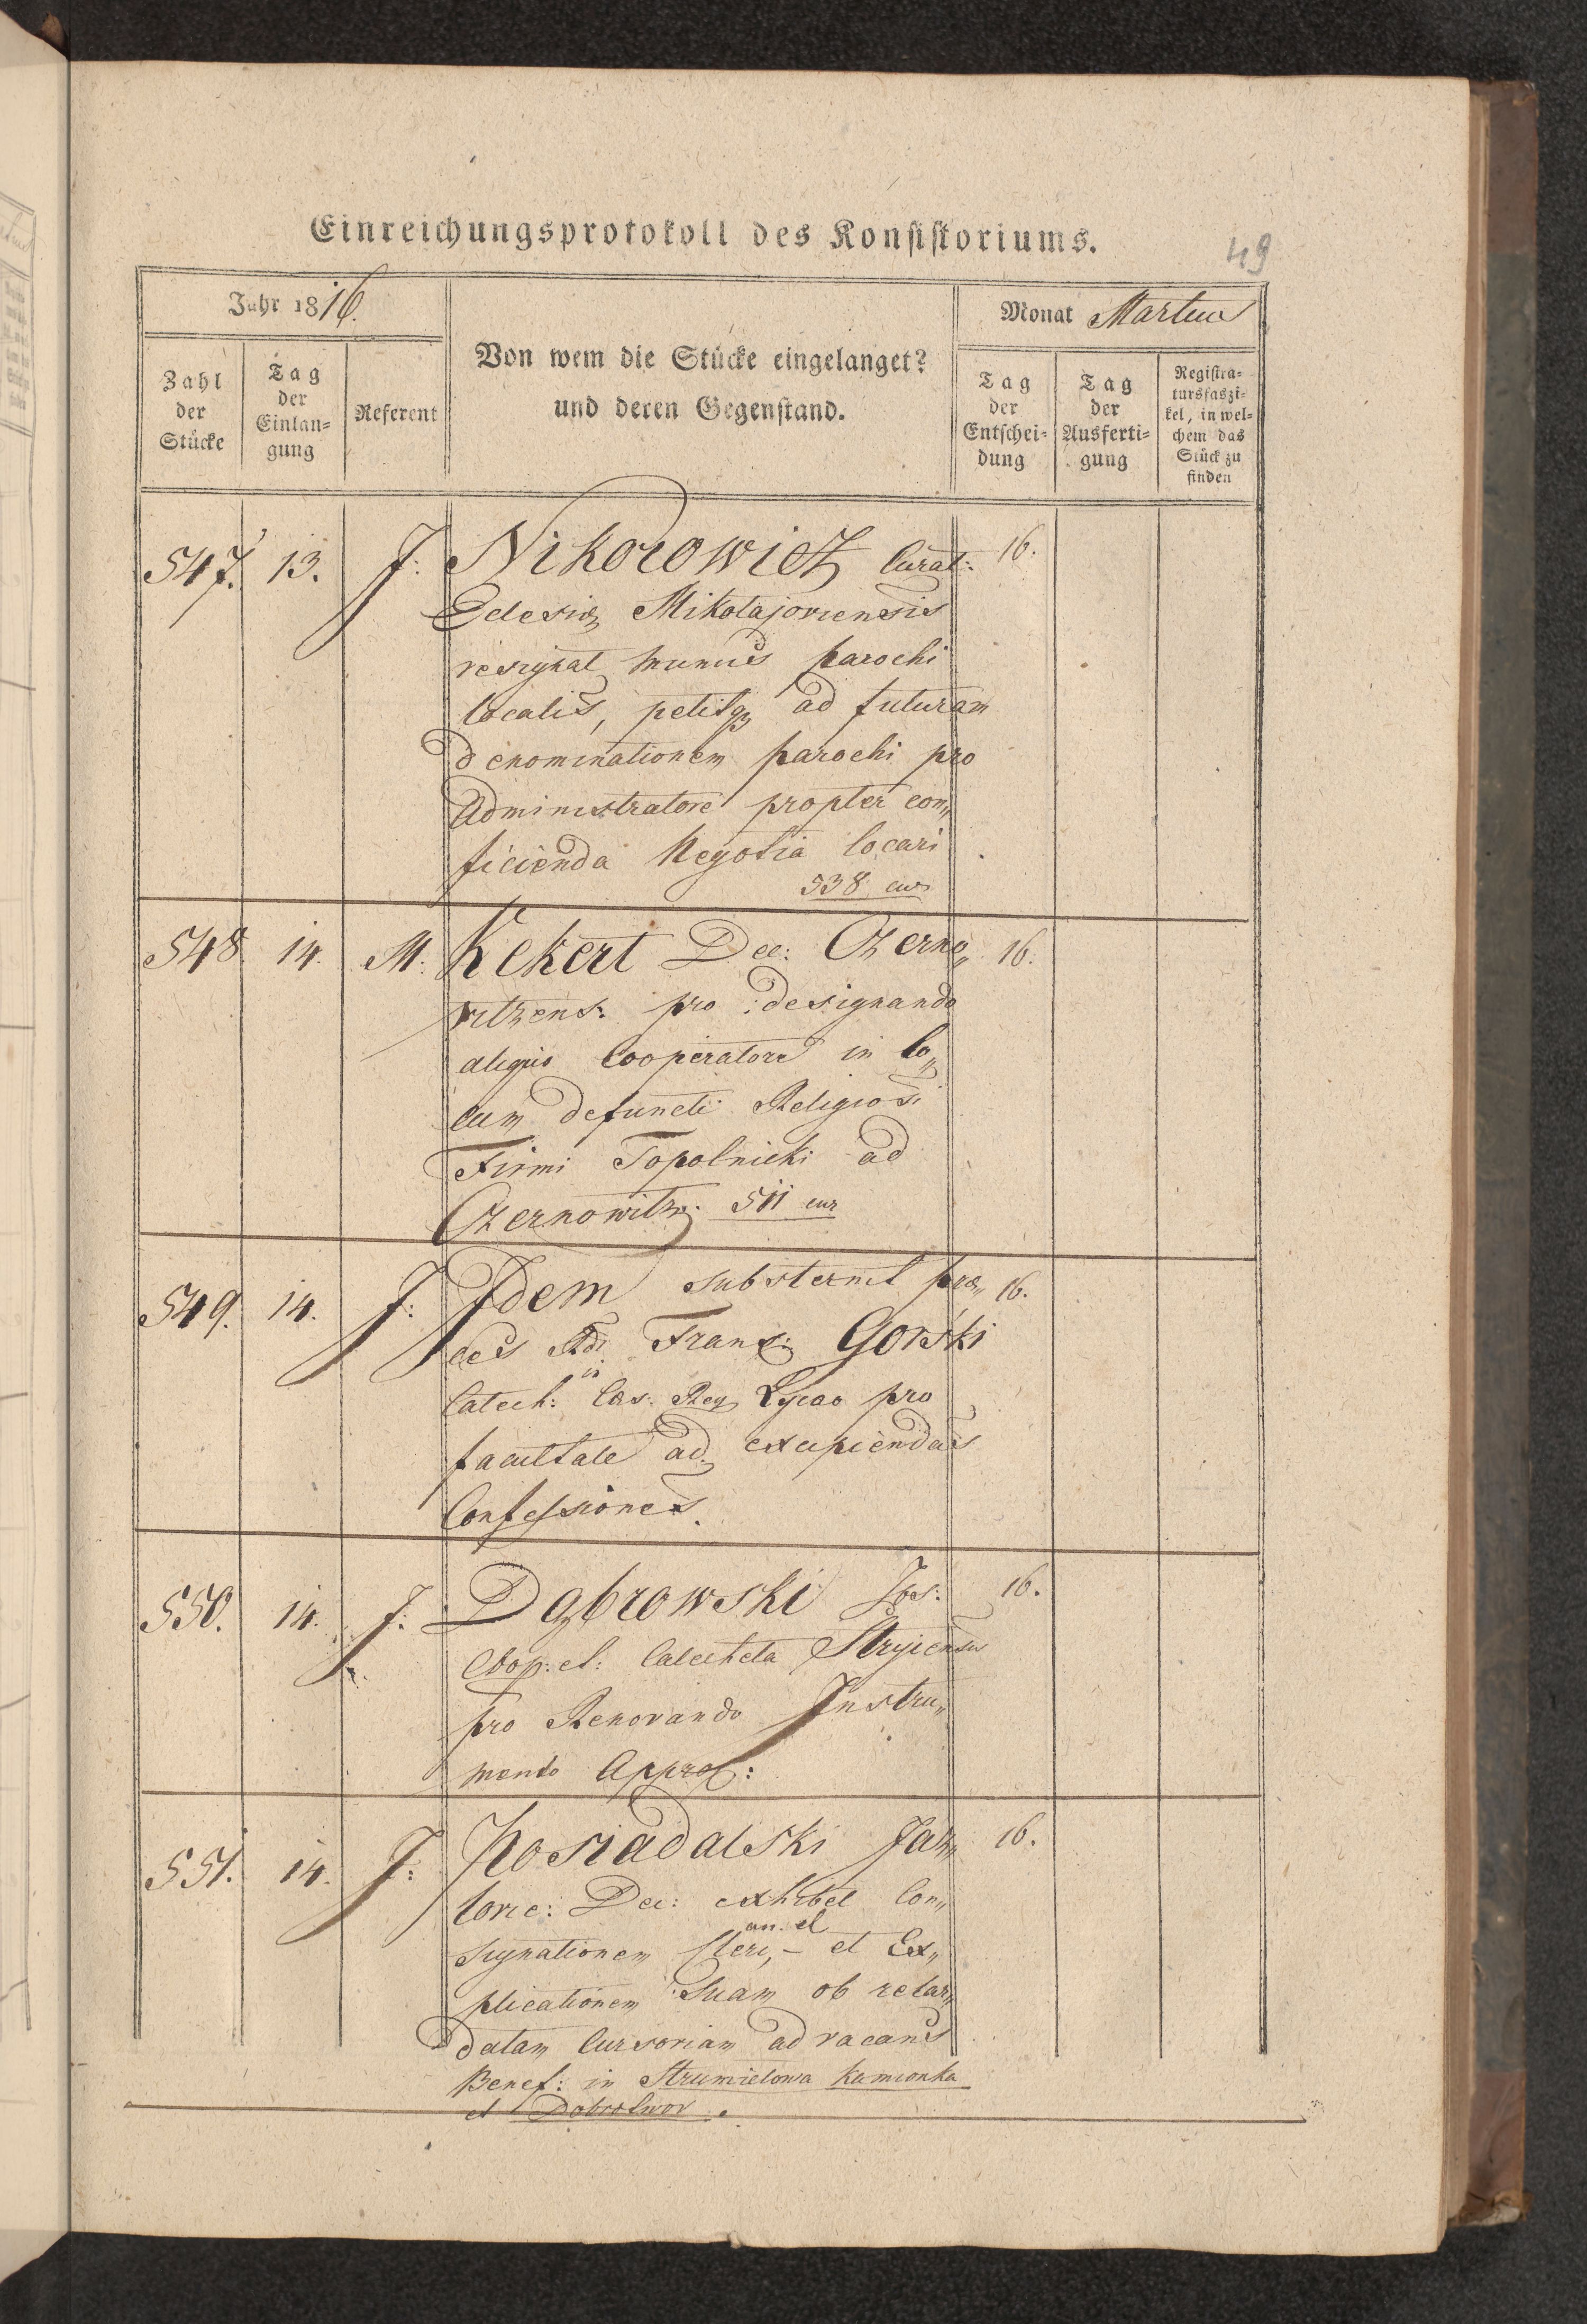 Einreichungsprotokoll des Konsistoriums.
49
Jahr 1816.
Monat Martius
Zahl der Stücke
Tag der Einlangung
Referent
Von wem die Stücke eingelanget?
und deren Gegenstand.
Tag der Entscheidung
Tag der Ausfertigung
Registratursfaszikel, in welchem das Stück zu finden
547. 13. J: Nikorowicz Curat: 16.
Eclesiæ Mikołajoviensis
resignat munus parochi
localis, petitq3 ad futuram
denominationem parochi pro
Administratore propter con„
ficienda Negotia locari
538 cur
548 14. M. Kekert Dec: Czerno„ 16.
vitzens: pro designando
aliquo Cooperatore in lo„
cum defuncti Religiosi
Firmi Topolnicki ad
Czernowitz. 511 cur
549. 14. J: Idem substernit præ„ 16.
ces Rdi Franx: Gorski
Catech: in Cæs: Reg Lycæo pro
facultate ad excipiendas
Confessiones.
550. 14. J: Dąbrowski Jos: 16.
Coop: et: Catecheta Stryiensis
pro Renovando Instru„
mento Approb:
551. 14. J: Kosiadalski Jah„ 16.
toric: Dec: exhibet Con„
signationem Cleri, – et Ex„
an. el
plicationem Suam ob retar„
datam Cursoriam ad vacans
Benef: in Strumiełowa Kamionka
et Dobrotwor.